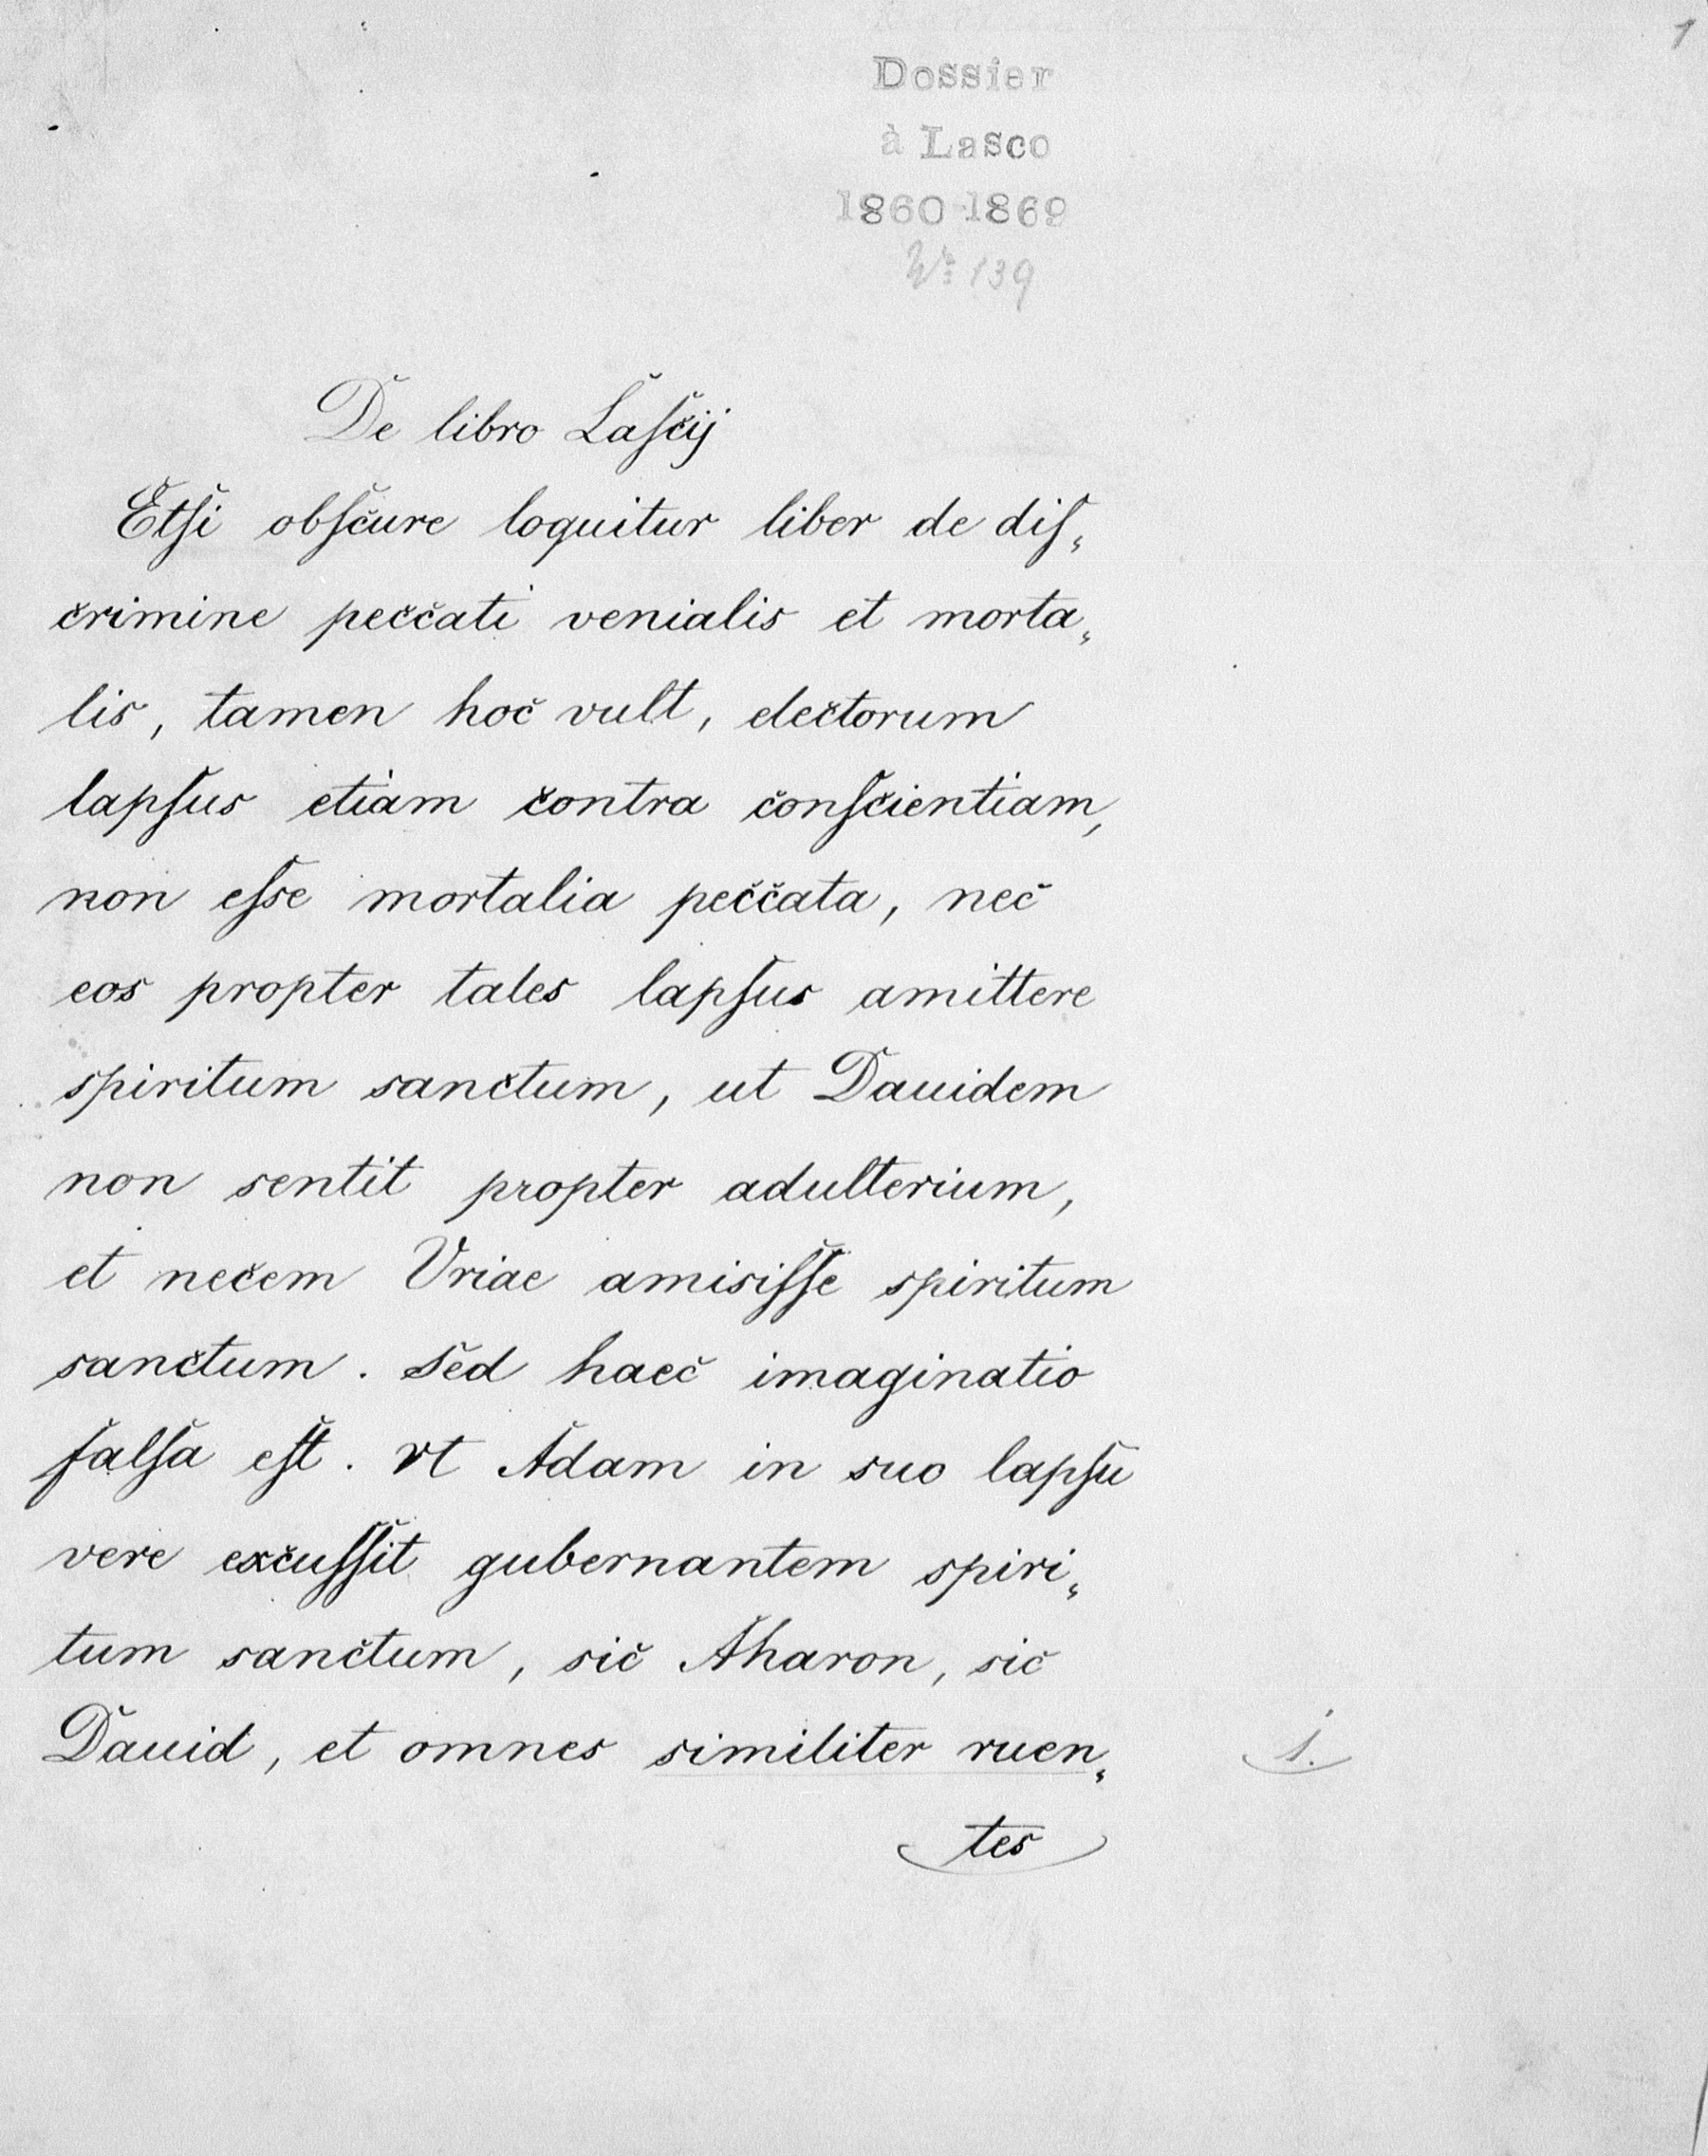 1
Dossier
à Lasco
1860-1869
Nr 139
De libro Laſcij
Etſi obſcure loquitur liber de diſ„
crimine peccati venialis et morta„
lis, tamen hoc vult, electorum
lapſus etiam contra conſcientiam,
non eſse mortalia peccata, nec
eos propter tales lapſus amittere
spiritum sanctum, ut Dauidem
non sentit propter adulterium,
et necem Vriae amisiſſe spiritum
sanctum. Sed haec imaginatio
falſa eſt. vt Adam in suo lapſu
vere excuſſit gubernantem spiri„
tum sanctum, sic Aharon, sic
Dauid, et omnes similiter ruen„
1.
tes